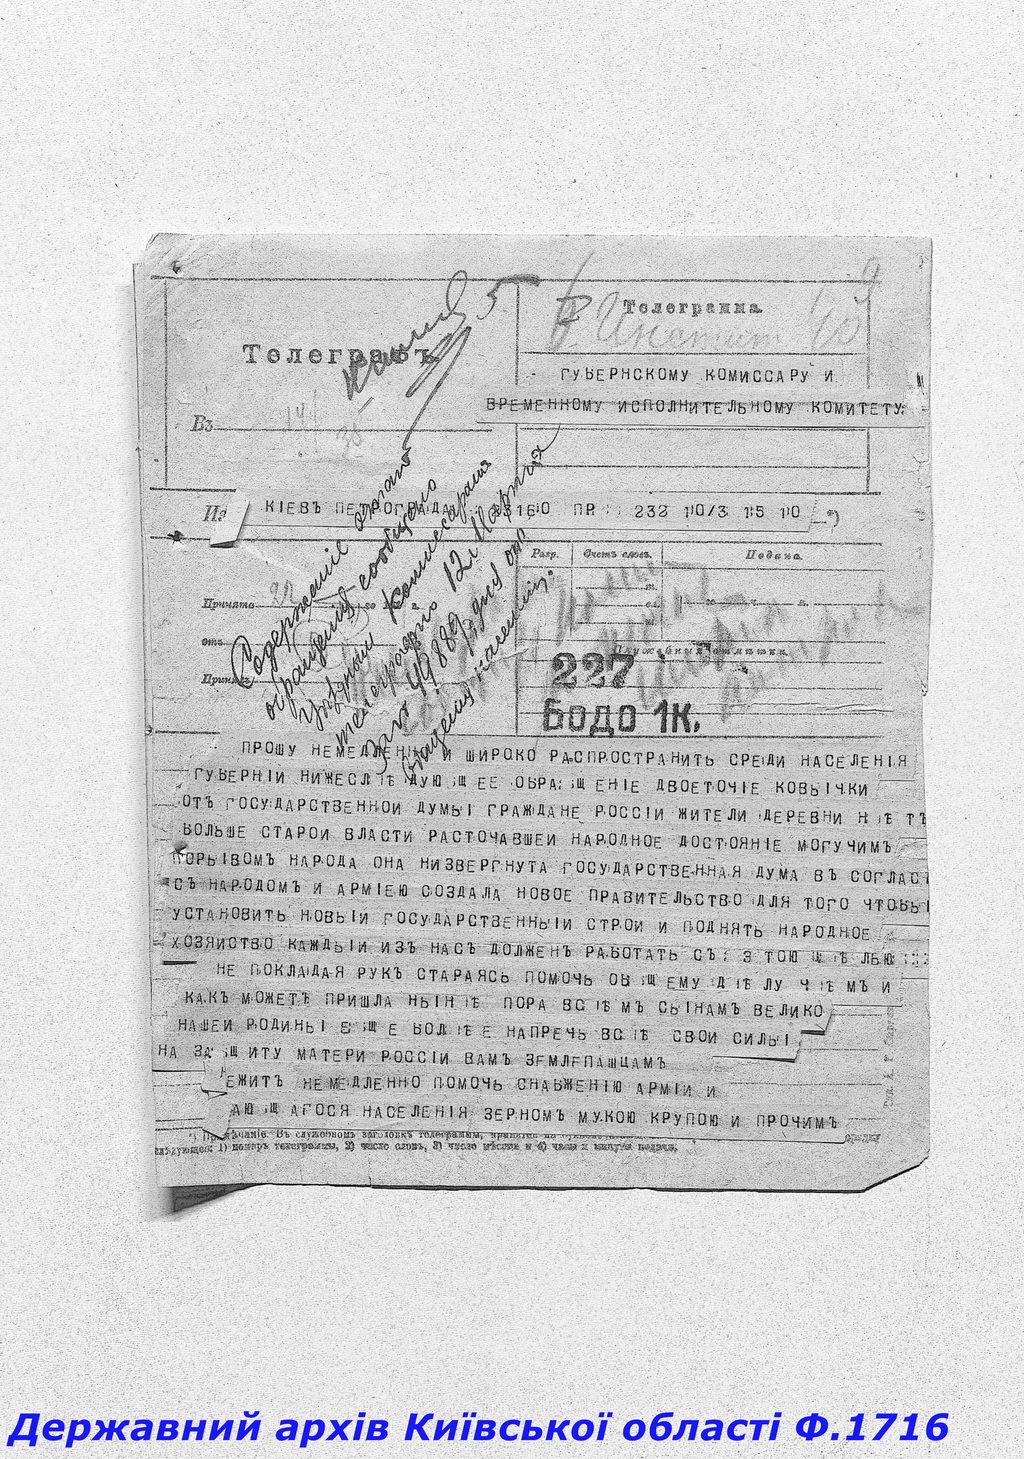 Телеграфъ.
Въ
Телеграмма.
ГУБЕРНСКОМУ КОМИССАРУ И
ВРЕМЕННОМУ ИСПОЛНИТЕЛЬНОМУ КОМИТЕТУ
Из
КІЕВЪ ПЕТРОГРАДА 23160 ПР 232 10/3 15 10
Разр.
Счетъ словъ.
Подана.
Принята
отъ
Служебныя отмѣтки.
227
БОДО 1К.
Содержаніе этого
обращенія сообщено
уѣзднымъ комиссарамъ
телеграммою 12 Марта
ПРОШУ НЕМЕДЛЕННО И ШИРОКО РАСПРОСТРАНИТЬ СРЕДИ НАСЕЛЕНІЯ
ГУБЕРНІИ НИЖЕСЛІЕДУЮЩЕЕ ОБРАЩЕНІЕ ДВОЕТОЧІЕ КОВЫЧКИ
ОТЪ ГОСУДАРСТВЕННОИ ДУМЫ ГРАЖДАНЕ РОССІИ ЖИТЕЛИ ДЕРЕВНИ НІЕТЪ
БОЛЬШЕ СТАРОИ ВЛАСТИ РАСТОЧАВШЕИ НАРОДНОЕ ДОСТОЯНІЕ МОГУЧИМЪ
ПОРЫВОМЪ НАРОДА ОНА НИЗВЕРГНУТА ГОСУДАРСТВЕННАЯ ДУМА ВЪ СОГЛАС
СЪ НАРОДОМЪ И АРМІЕЮ СОЗДАЛА НОВОЕ ПРАВИТЕЛЬСТВО ДЛЯ ТОГО ЧТОБЫ
УСТАНОВИТЬ НОВЫИ ГОСУДАРСТВЕННЫИ СТРОИ И ПОДНЯТЬ НАРОДНОЕ
ХОЗЯИСТВО КАЖДЫИ ИЗЪ НАСЪ ДОЛЖЕНЪ РАБОТАТЬ СЪ ЭТОЮ ЩІЕЛЬЮ
НЕ ПОКЛАДАЯ РУКЪ СТАРАЯСЬ ПОМОЧЬ ОБЩЕМУ ДІЕЛУ ЧІЕМЪ И
КАКЪ МОЖЕТЪ ПРИШЛА НЫНІЕ ПОРА ВСІЕМЪ СЫНАМЪ ВЕЛИКО
НАШЕИ РОДИНЫ ЕЩЕ БОЛІЕЕ НАПРЕЧЬ ВСІЕ СВОИ СИЛЫ
НА ЗАЩИТУ МАТЕРИ РОССІИ ВАМЪ ЗЕМЛЕПАШЦАМЪ
ЕЖИТЪ НЕМЕДЛЕННО ПОМОЧЬ СНАБЖЕНІЮ АРМІИ И
АЮЩАГОСЯ НАСЕЛЕНІЯ ЗЕРНОМЪ МУКОЮ КРУПОЮ И ПРОЧИМЪ
Въ служебномъ заголовкѣ телеграммы,
1) номеръ телеграммы, 2) число словъ, 3) число мѣсяца и 4) часы и минуты подачи.
Державний архів Київської області Ф.1716